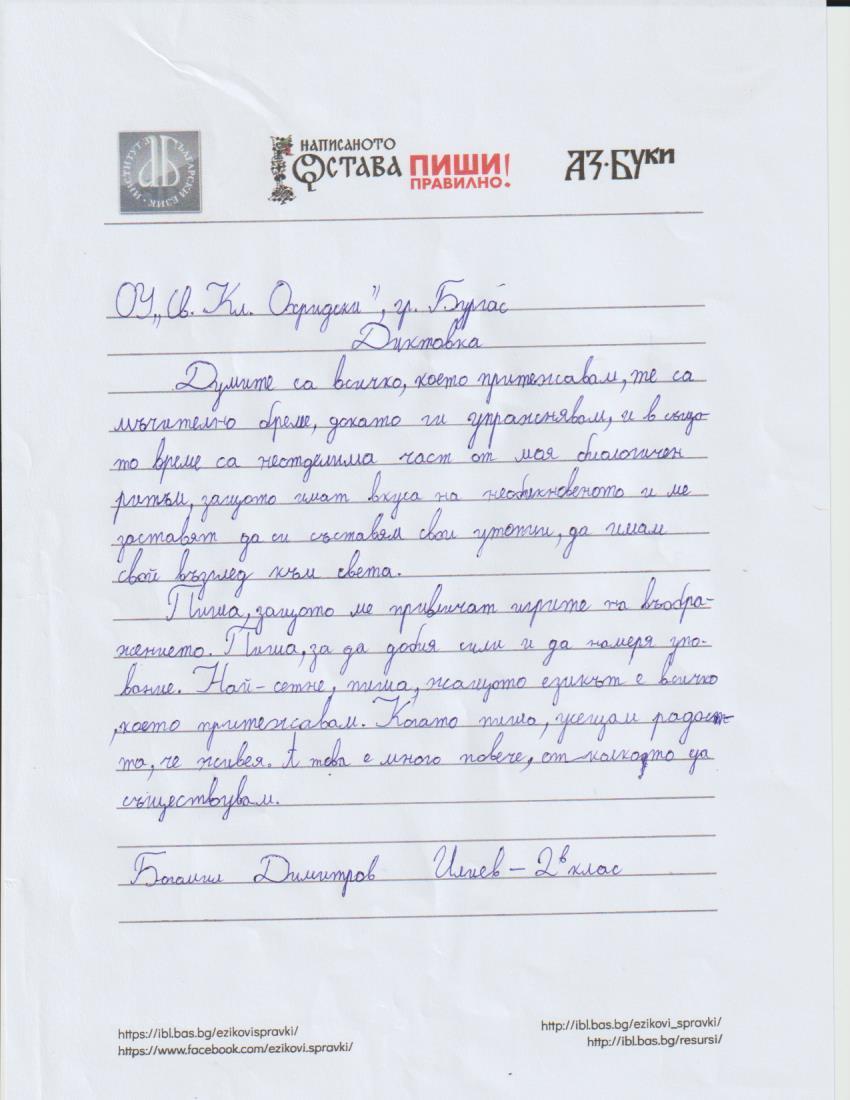 ИНСТИТУТ ЗА БЪЛГАРСКИ ЕЗИК
НАПИСАНОТО
ОСТАВА ПИШИ
ПРАВИЛНО!
АЗ·БУКИ
ОУ„Св. Кл. Охридски”, гр. Бургас
Диктовка
Думите са всичко, което притежавам, те са
мъчително бреме, докато ги упражнявам, и в също-
то време са неотделима част от моя биологичен
ритъм, защото имат вкуса на необикновеното и ме
заставят да си съставям свои утопии, да имам
свой възглед към света.
Пиша, защото ме привличат игрите на въобра-
жението. Пиша, за да добия сили и да намеря упо-
вание. Най-сетне, пиша, жащото езикът е всичко
,което притежавам. Когато пиша, усещам радост-
та, че живея. А това е много повече, от колкото да
съществувам.
Богомил Димитров Илиев – 2в клас
https://ibl.bas.bg/ezikovispravki/
https://www.facebook.com/ezikovi.spravki/
http://ibl.bas.bg/ezikovi_spravki/
http://ibl.bas.bg/resursi/